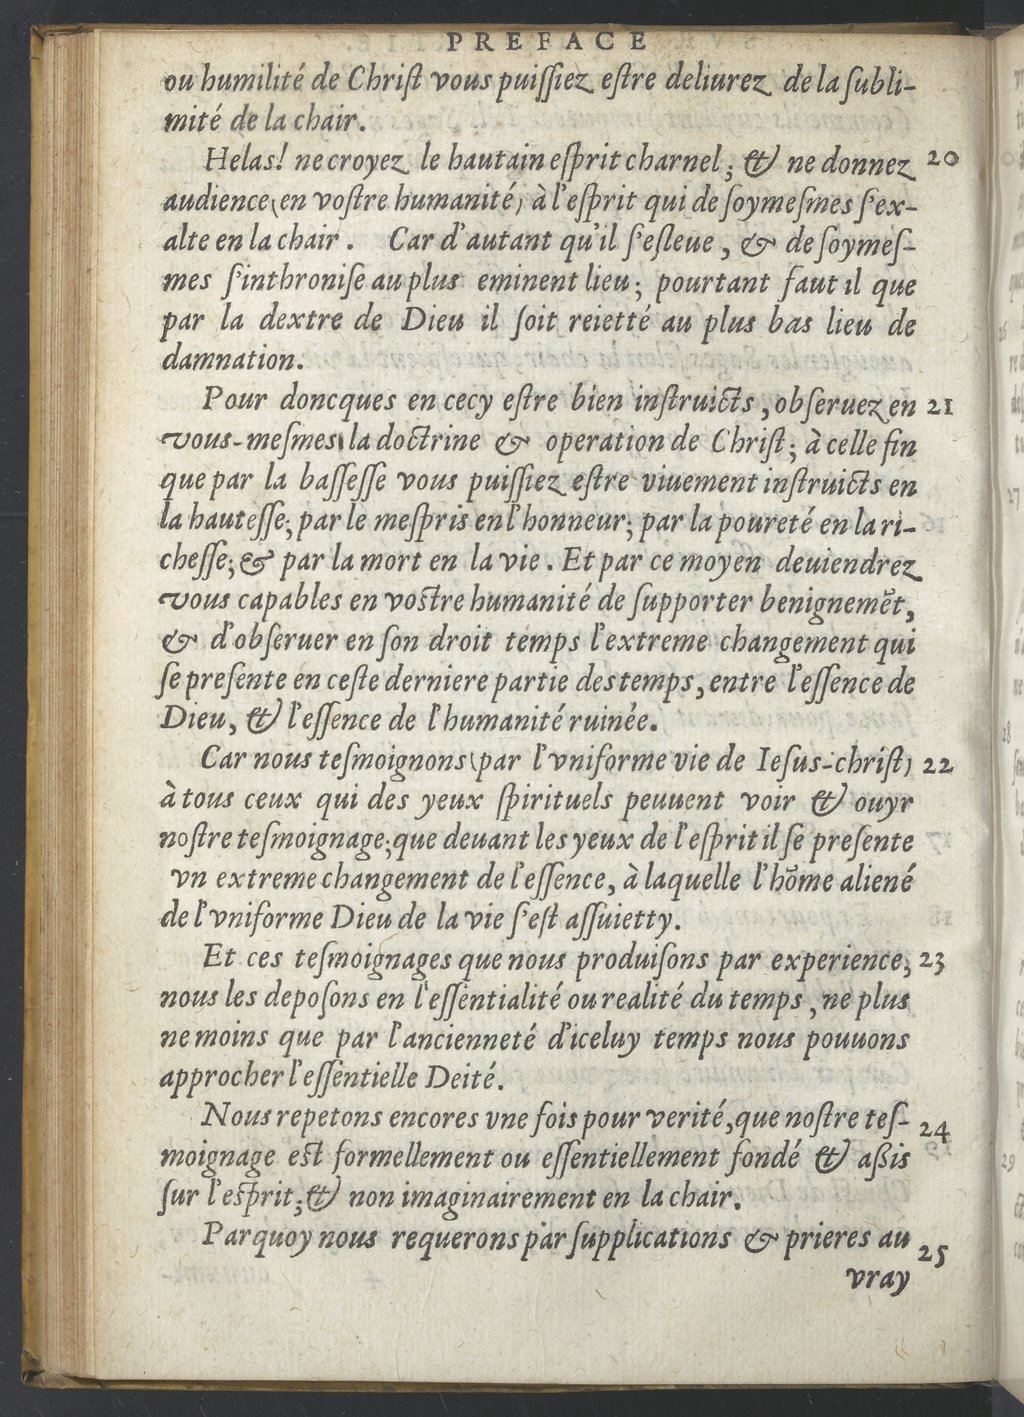 PREFACE
ou humilité de Chriſt vous puiſſiez eſtre deliurez de la ſubli-
mité de la chair.
Helas! ne croyez le hautain eſprit charnel; & ne donnez 20
audience (en voſtre humanité) à l'eſprit qui de ſoymeſmes ſ'ex-
alte en la chair. Car d'autant qu'il ſ'eſleue, & de ſoymeſ-
mes ſ'inthroniſe au plus eminent lieu; pourtant faut il que
par la dextre de Dieu il ſoit reietté au plus bas lieu de
damnation.
Pour doncques en cecy eſtre bien inſtruicts, obſeruez en 21
vous-meſmes la doctrine & operation de Chriſt; à celle fin
que par la baſſeſſe vous puiſſiez eſtre viuement inſtruicts en
la hauteſſe; par le meſpris en l'honneur; par la poureté en la ri-
cheſſe; & par la mort en la vie. Et par ce moyen deuiendrez
vous capables en voſtre humanité de ſupporter benignemēt,
& d'obſeruer en ſon droit temps l'extreme changement qui
ſe preſente en ceſte derniere partie des temps, entre l'eſſence de
Dieu, & l'eſſence de l'humanité ruinée.
Car nous teſmoignons (par l'vniforme vie de Ieſus-chriſt) 22
à tous ceux qui des yeux ſpirituels peuuent voir & ouyr
noſtre teſmoignage; que deuant les yeux de l'eſprit il ſe preſente
vn extreme changement de l'eſſence, à laquelle l'hōme aliené
de l'vniforme Dieu de la vie ſ'eſt aſſuietty.
Et ces teſmoignages que nous produiſons par experience; 23
nous les depoſons en l'eſſentialité ou realité du temps, ne plus
ne moins que par l'ancienneté d'iceluy temps nous pouuons
approcher l'eſſentielle Deité.
Nous repetons encores vne fois pour verité, que noſtre teſ- 24
moignage eſt formellement ou eſſentiellement fondé & aßis
ſur l'eſprit; & non imaginairement en la chair.
Parquoy nous requerons par ſupplications & prieres au 25
vray